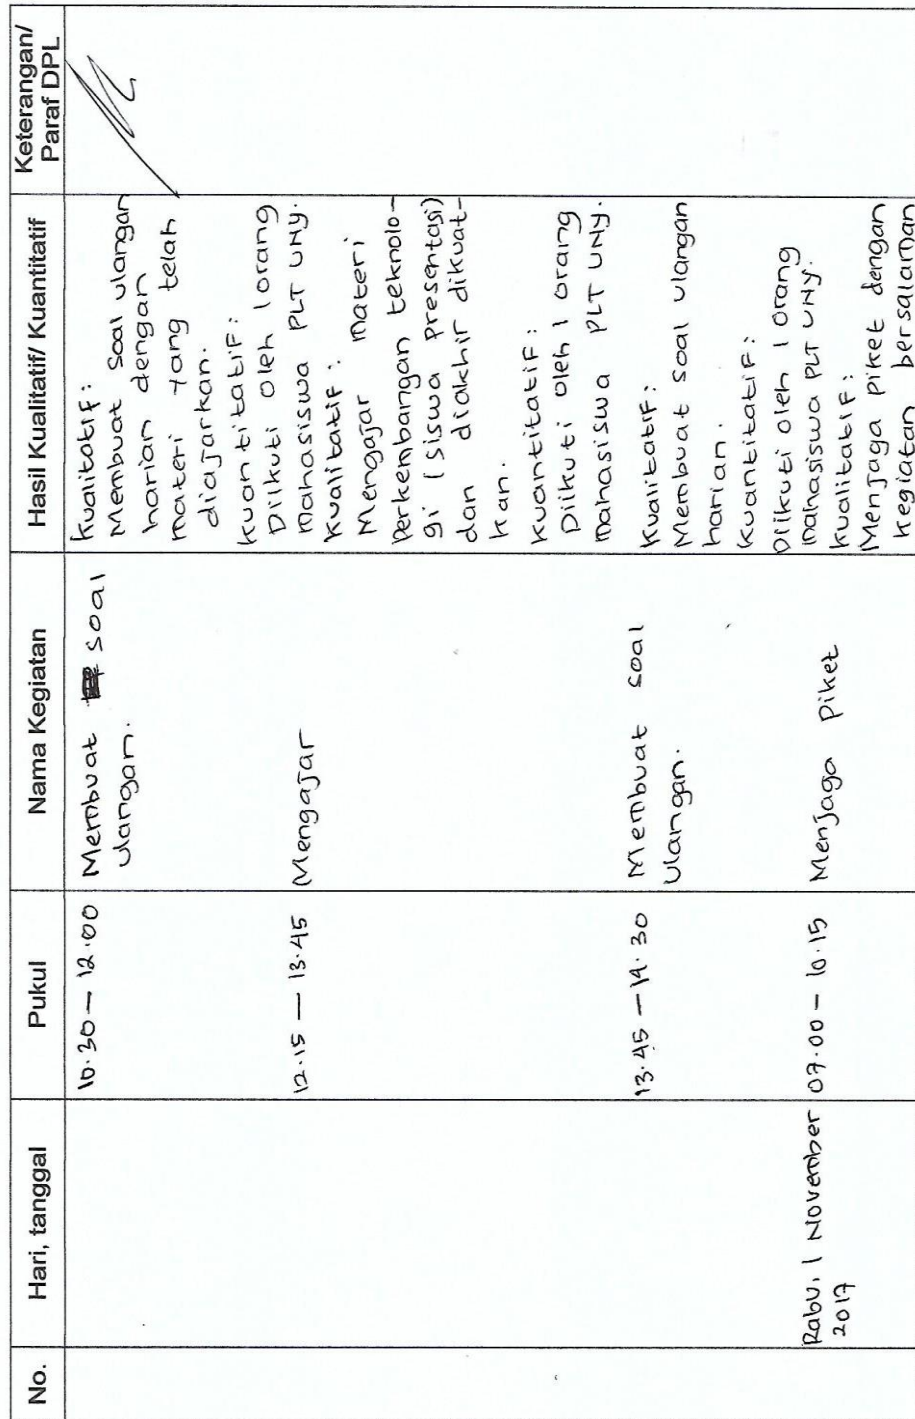 No.
Hari, tanggal
Pukul
Nama Kegiatan
Hasil Kualitatif/ Kuantitatif
Keterangan/
Paraf DPL
10.30 – 12.00
Membuat soal
ulangan.
Kualitatif:
Membuat soal ulangan
harian dengan
materi yang telah
diajarkan.
Kuantitatif:
Diikuti oleh 1 orang
mahasiswa PLT UNY.
12.15 – 13.45
Mengajar
Kualitatif:
Mengajar materi
Perkembangan teknolo-
gi (siswa presentasi)
dan diakhir dikuat-
kan.
Kuantitatif:
Diikuti oleh 1 orang
mahasiswa PLT UNY.
13.45 – 14.30
Membuat soal
Ulangan.
Kualitatif:
Membuat soal ulangan
harian.
Kuantitatif:
Diikuti oleh 1 orang
mahasiswa PLT UNY.
Rabu, 1 November
2017
07.00 – 10.15
Menjaga Piket
Kualitatif:
Menjaga piket dengan
kegiatan bersalaman